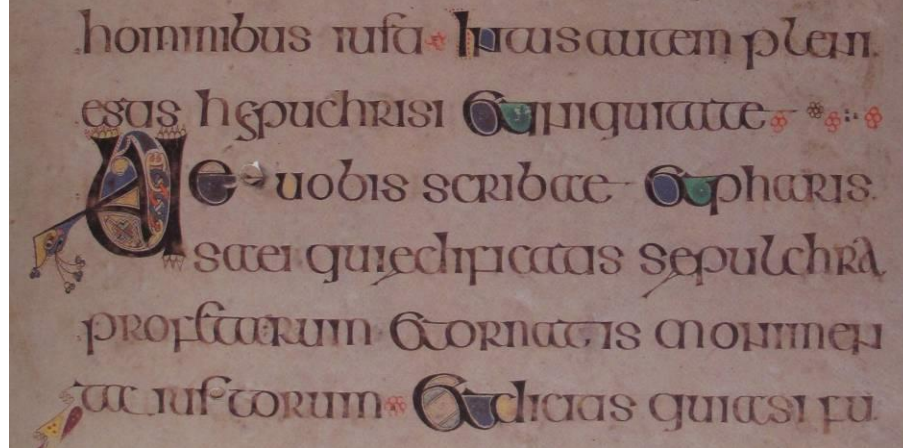 hominibus iusti intus autem pleni
estis hypuchrisi et iniquitate
Uae uobis scribae et pharis
saei qui edificatis sepulchra
profetarum et ornatis monimen
ta iustorum et dicitis quia si fu